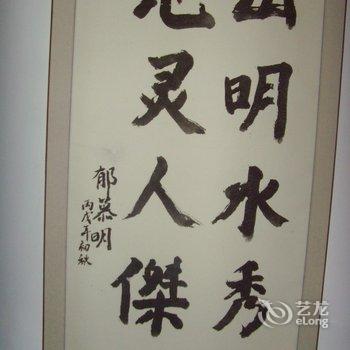 山明水秀
地灵人傑
郁慕明
丙戌年初秋
艺龙
eLong